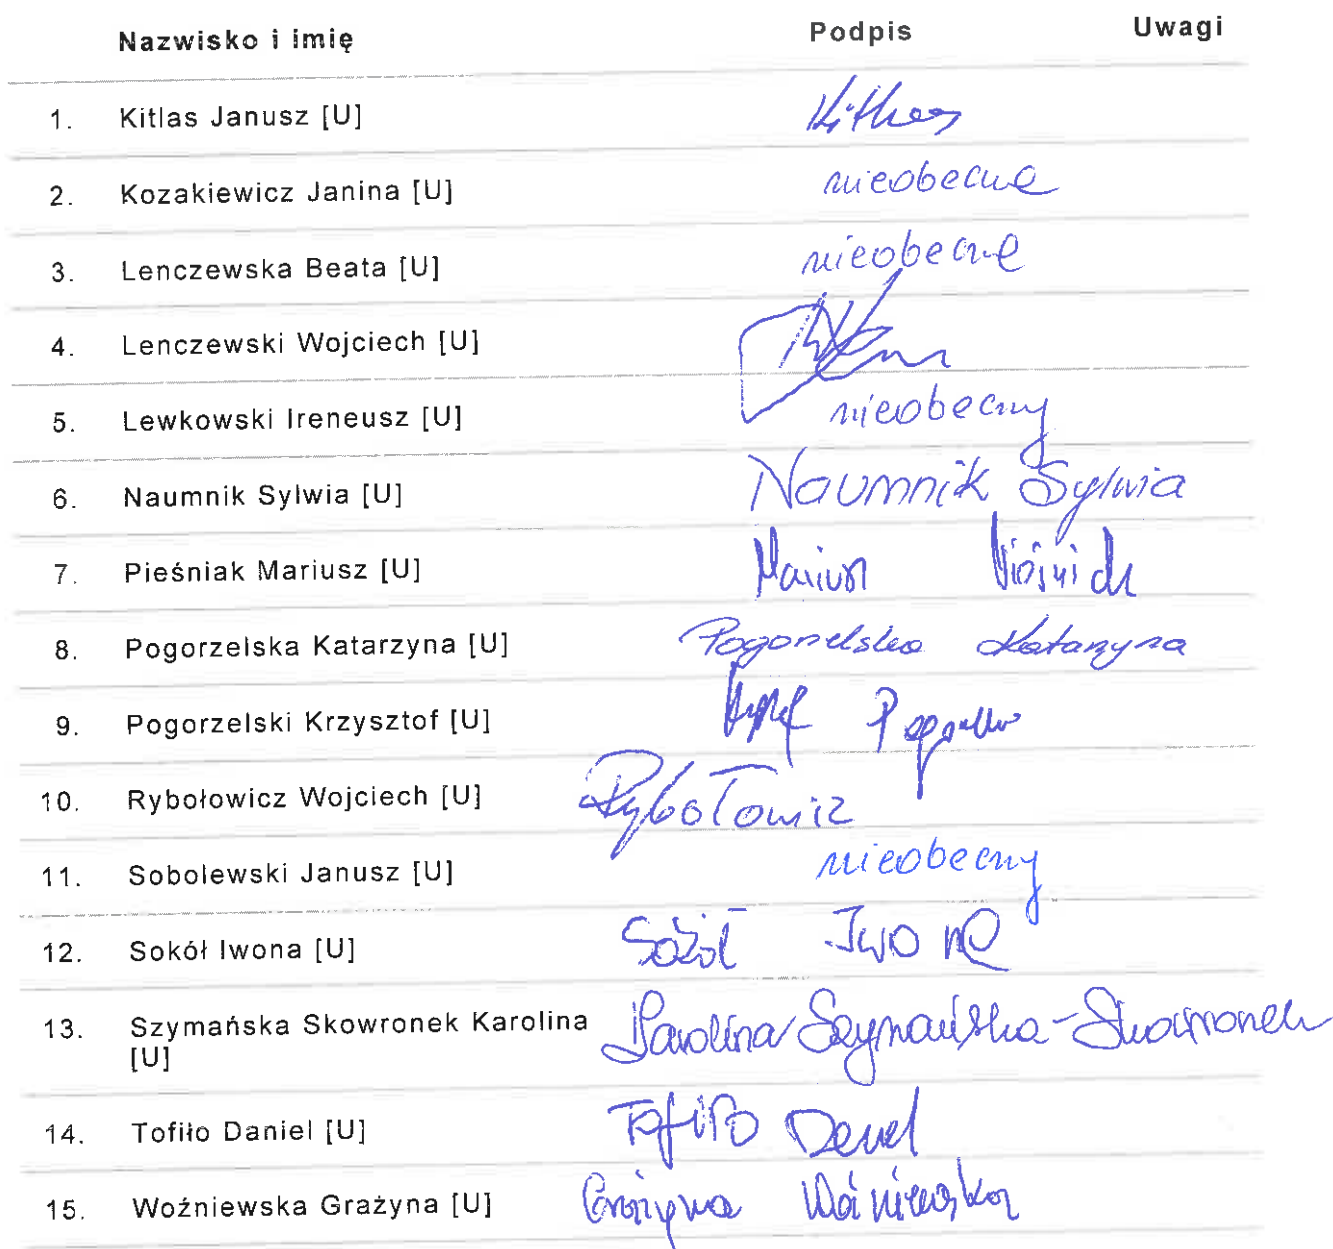 Nazwisko i imię Podpis Uwagi
1. Kitlas Janusz [U] Kitlas
2. Kozakiewicz Janina [U] nieobecna
3. Lenczewska Beata [U] nieobecna
4. Lenczewski Wojciech [U]
5. Lewkowski Ireneusz [U] nieobecny
6. Naumnik Sylwia [U] Naumnik Sylwia
7. Pieśniak Mariusz [U] Mariusz Pieśniak
8. Pogorzelska Katarzyna [U] Pogorzelska Katarzyna
9. Pogorzelski Krzysztof [U]
10. Rybołowicz Wojciech [U] Rybołowicz
11. Sobolewski Janusz [U] nieobecny
12. Sokół Iwona [U] Sokół Iwona
13. Szymańska Skowronek Karolina Karolina Szymańska-Skowronek
[U]
14. Tofiło Daniel [U] Tofiło Daniel
15. Woźniewska Grażyna [U] Grażyna Woźniewska